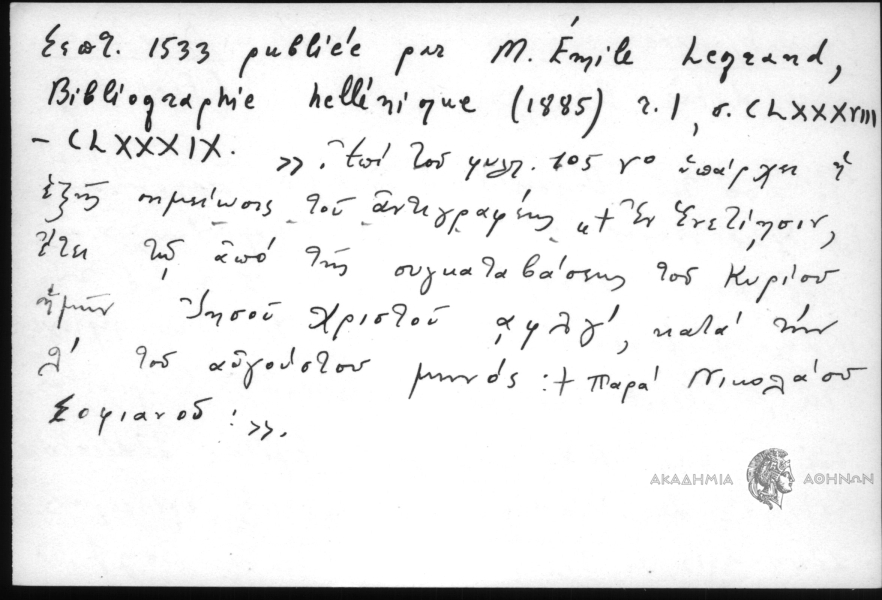 Σεπτ. 1533 publiée par M. Émile Legrand,
Bibliographie hellénique (1885) τ. 1, σ. CLXXXVIII
- CLXXXIX. >> . Ἐπί τοῦ φυλλ. 105 rº ὑπάρχει ἡ
ἑξῆς σημείωσις τοῦ ἀντιγραφέως + Ἐν Ἐνετίησιν,
ἔτει τῷ ἀπό τῆς συγκαταβάσεως τοῦ Κυρίου
ἡμῶν Ἰησοῦ Χριστοῦ ͵αφλγ', κατά τήν
λ' τοῦ αὐγούστου μηνός :+ παρά Νικολάου
Σοφιανοῦ : >>.
ΑΚΑΔΗΜΙΑ ΑΘΗΝΩΝ